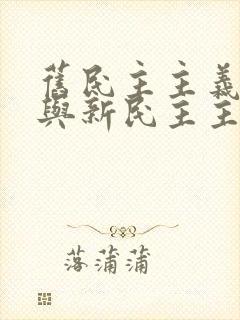 舊民主主義
與新民主主
落蒲蒲